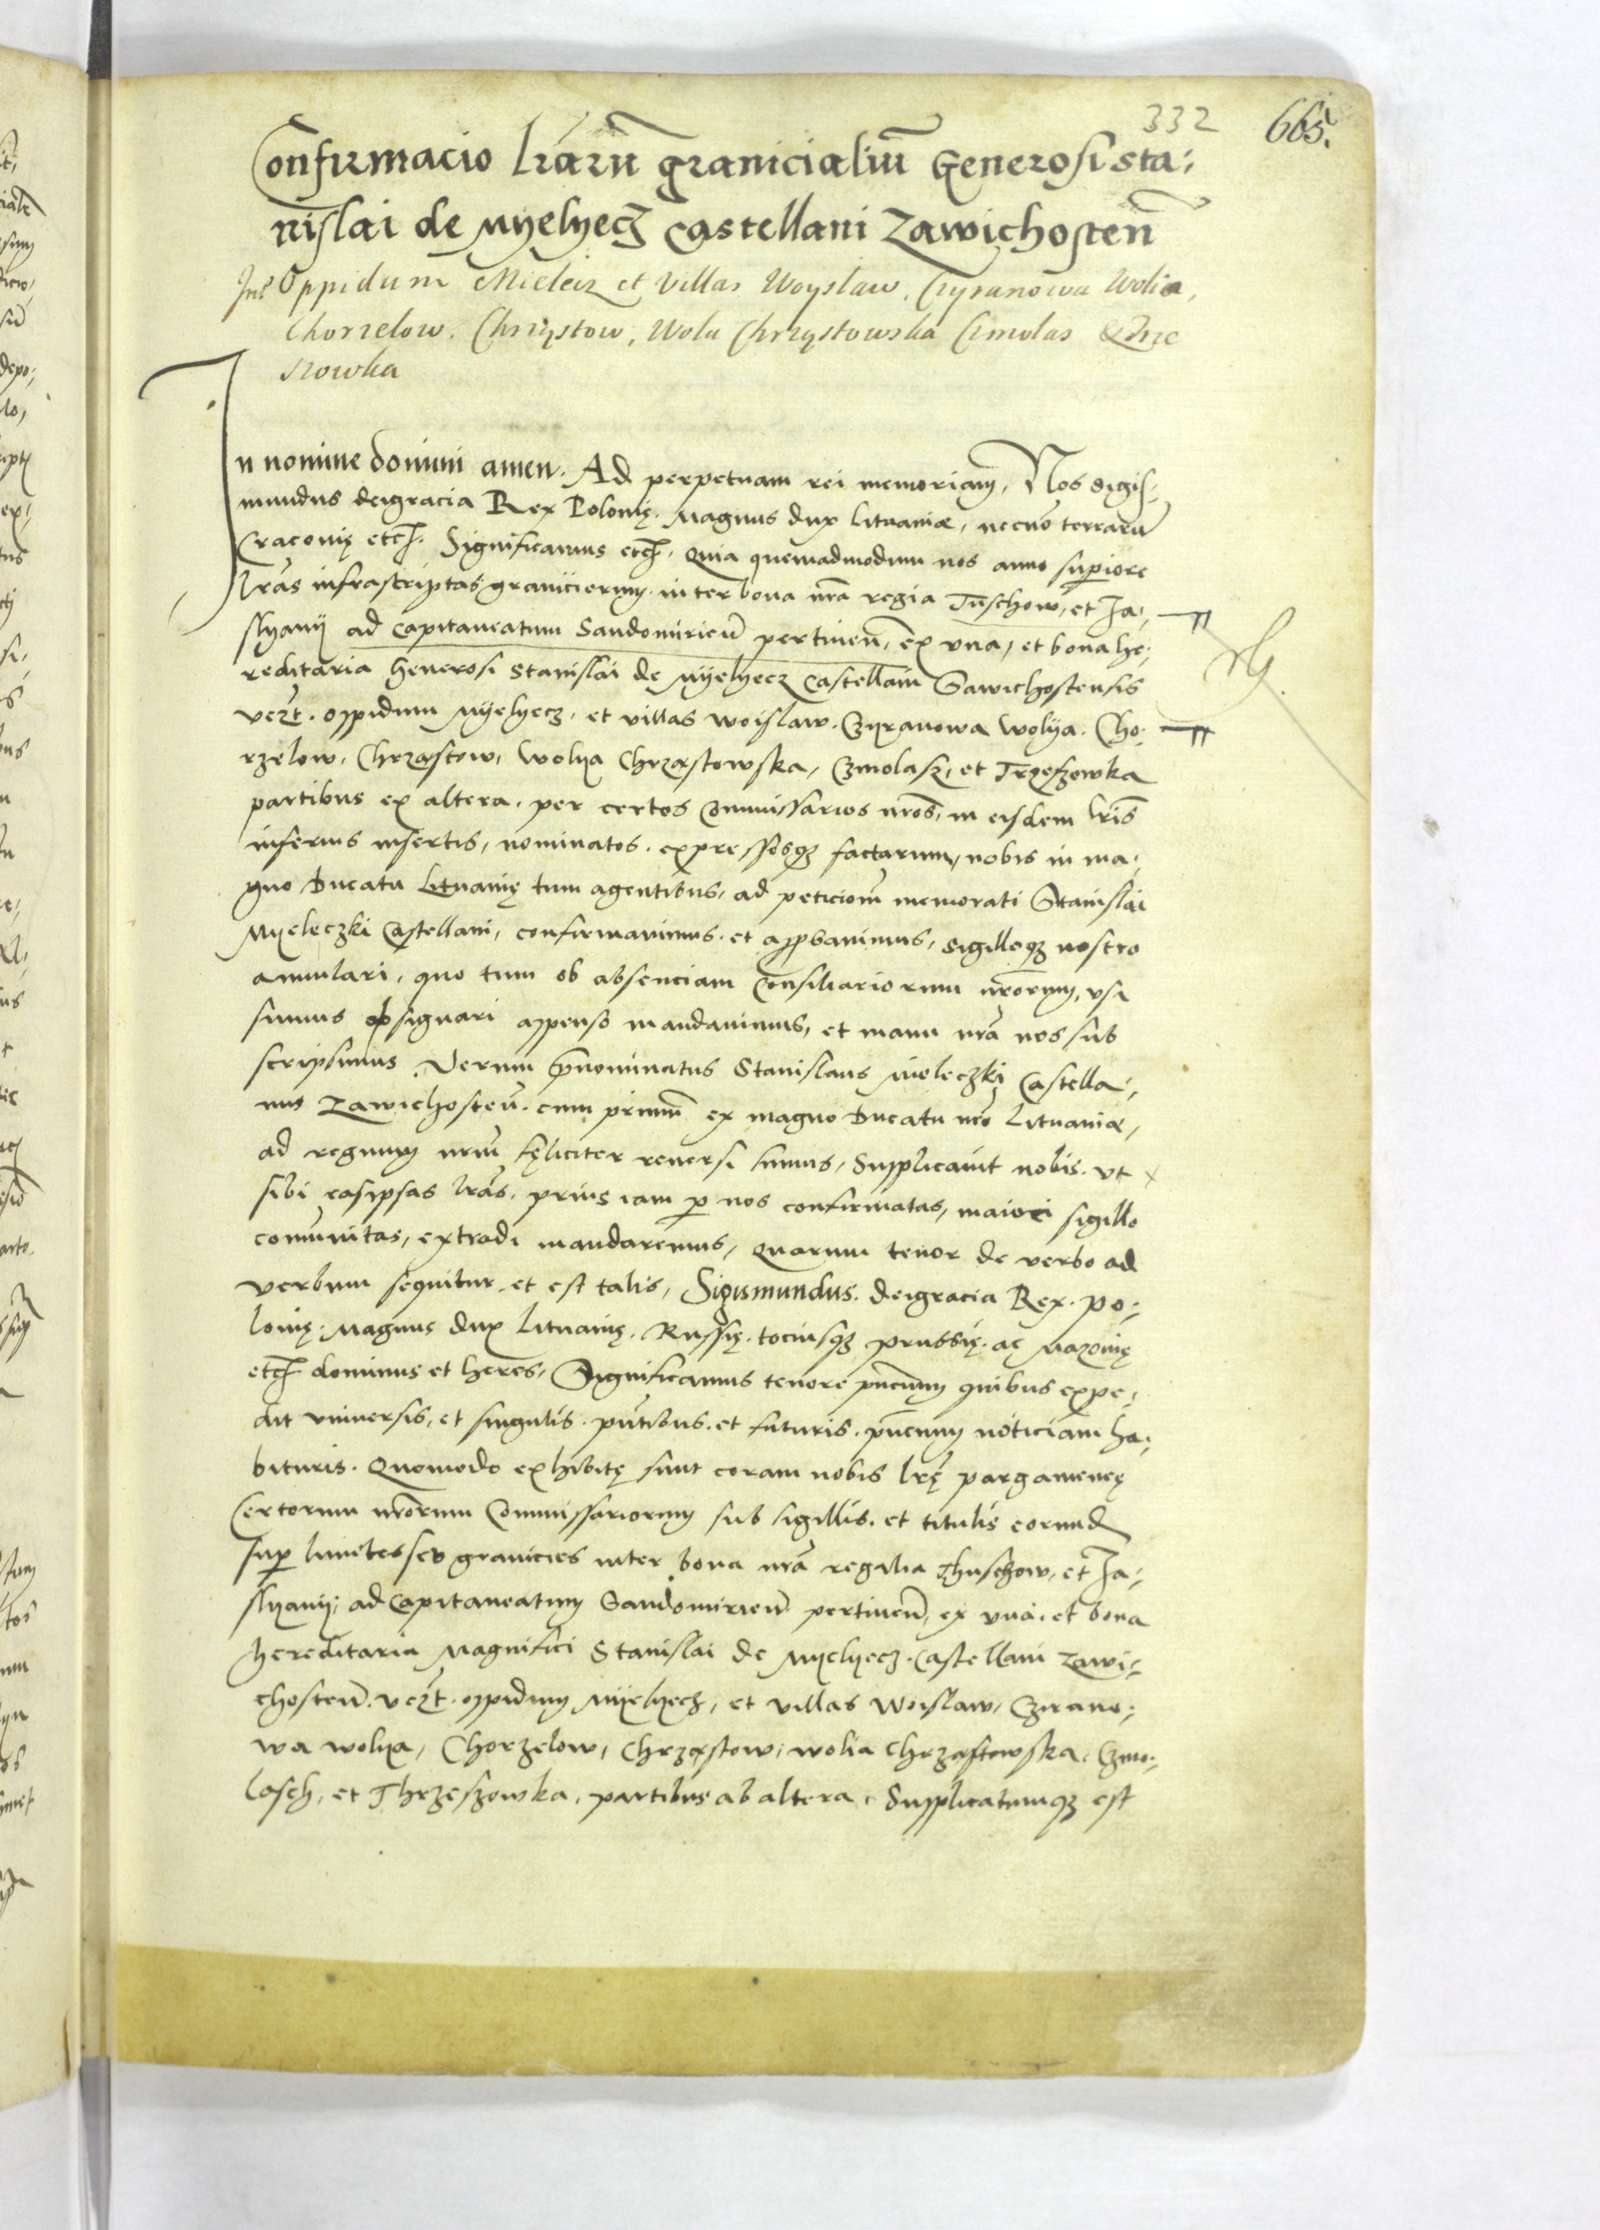 332 665.
Confirmacio lrarū granicialiū Generosi Sta:
nislai de Myelyecz Castellani Zawichosteñ
Int Oppidum Mieleiz et Villas Woyslaw, Czyranowa Wolia,
Chorzelow, Chrzystow, Wola Chrzystowska Cmolas & Trze
szowka
In nomine domini amen. Ad perpetuam rei memoriam, Nos Sigis:
mundus deigracia Rex Polonię. Magnus dux Lituaniæ, necnō terrarū
Cracovię etc. Significamus etc. Quia quemadmodum nos anno superiore
lrās infrascriptas granicierum inter bona nrā regia Tuschow, et Ja:
slyany ad Capitaneatum Sandomirieñ pertineñ, ex una, et bona he:
reditaria Generosi Stanislai de Myelyecz Castellani Sawichostensis
vezt. oppidum Myelyecz, et villas woislaw. Czyranowa wolya. Cho:
rzelow, Chrząstow, wolya Chrząstowska, Czmolasz, et Trzeszowka
partibus ex altera, per certos Commissarios nrōs, in eisdem lrīs
inferius insertis, nominatos. expressosqz factarum, nobis in ma:
gno Ducatu Lituanię tum agentibus, ad peticionē memorati Stanislai
Myeleczki Castellani, confirmavimus. et approbavimus, sigilloqz nostro
annulari, quo tum ob absenciam Consiliariorum nrōrum, usi
sumus obsignari appenso mandavimus, et manu nrā nos sub
scripsimus. Verum prenominatus Stanislaus mieleczki Castella:
nus Zawichosteñ. cum primū ex magno Ducatu nrō Lituaniæ,
ad regnum nrūm fęliciter reversi sumus, Supplicavit nobis. ut
sibi easipsas lrās, prius iam p nos confirmatas, maiori sigillo
comunitas, extradi mandaremus, Quarum tenor de verbo ad
verbum sequitur. et est talis, Sigismundus. deigracia Rex. Po:
lonię. Magnus dux Lituanię. Russię. tociusqz prussię. ac Mazovię
etc dominus et heres, Significamus tenore pñcium quibus expe:
dit universis, et singulis. pñtibus. et futuris. pñcium noticiam ha:
bituris. Quomodo exhibitę sunt coram nobis lrę pargamenę
Certorum nrōrum Commissariorum sub sigillis. et titulis eorund
sup limites seu granicies inter bona nrā regalia Thuschow, et Ja:
slyany, ad Capitaneatum Sandomirieñ pertineñ, ex una, et bona
hereditaria Magnifici Stanislai de Myelyecz. Castellani Zawi:
chosteñ. vezt. oppidum Myelyecz, et villas Woislaw, Czirano:
wa wolya, Chorzelow, Chrząstow, wolia Chrząstowska, Czmo:
lasch, et Thrzeszowka, partibus ab altera. Supplicatumqz est